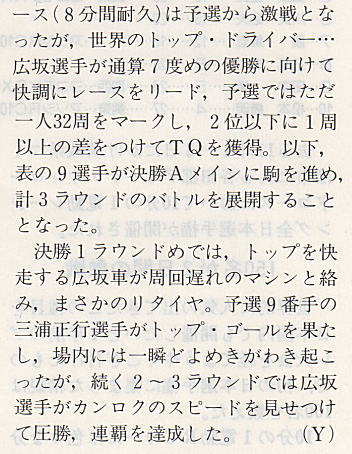 ース(8分間耐久)は予選から激戦とな
ったが，世界のトップ・ドライバー…
広坂選手が通算7度めの優勝に向けて
快調にレースをリード，予選ではただ
一人32周をマークし，2位以下に1周
以上の差をつけてTQを獲得。以下，
表の9選手が決勝Aメインに駒を進め，
計3ラウンドのバトルを展開すること
となった。
　決勝1ラウンドめでは，トップを快
走する広坂車が周回遅れのマシンと絡
み，まさかのリタイヤ。予選9番手の
三浦正行選手がトップ・ゴールを果た
し，場内には一瞬どよめきがわき起こ
ったが，続く2・3ラウンドでは広坂
選手がカンロクのスピードを見せつけ
て圧勝，連覇を達成した。　(Y)